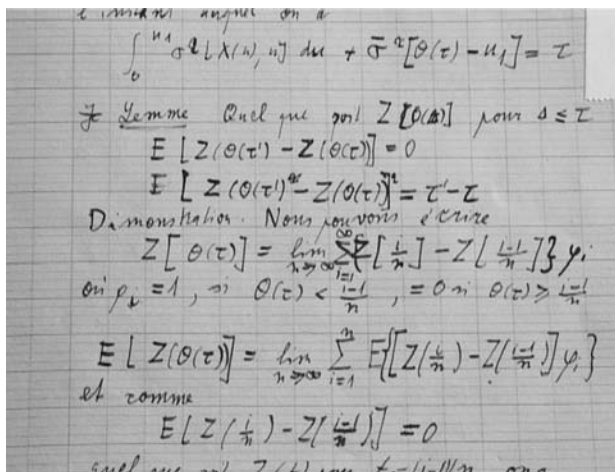 l'instant auquel on a
∫₀^{u₁} σ²[X(u), u] du + σ̄²[θ(τ) − u₁] = τ
Lemme Quel que soit Z[θ(Δ)] pour Δ ≤ τ
E[Z(θ(τ') − Z(θ(τ)] = 0
E[Z(θ(τ') − Z(θ(τ)]² = τ' − τ
Démonstration. Nous pouvons écrire
Z[θ(τ)] = lim_{n→∞} Σ_{i=1}^{∞} {Z[i/n] − Z[(i−1)/n]} φ_i
où φ_i = 1, si θ(τ) < (i−1)/n, = 0 si θ(τ) ≥ (i−1)/n
E[Z(θ(τ)] = lim_{n→∞} Σ_{i=1}^{n} E{[Z(i/n) − Z((i−1)/n)] φ_i}
et comme
E[Z(i/n) − Z((i−1)/n)] = 0
quel que soit Z(t) pour